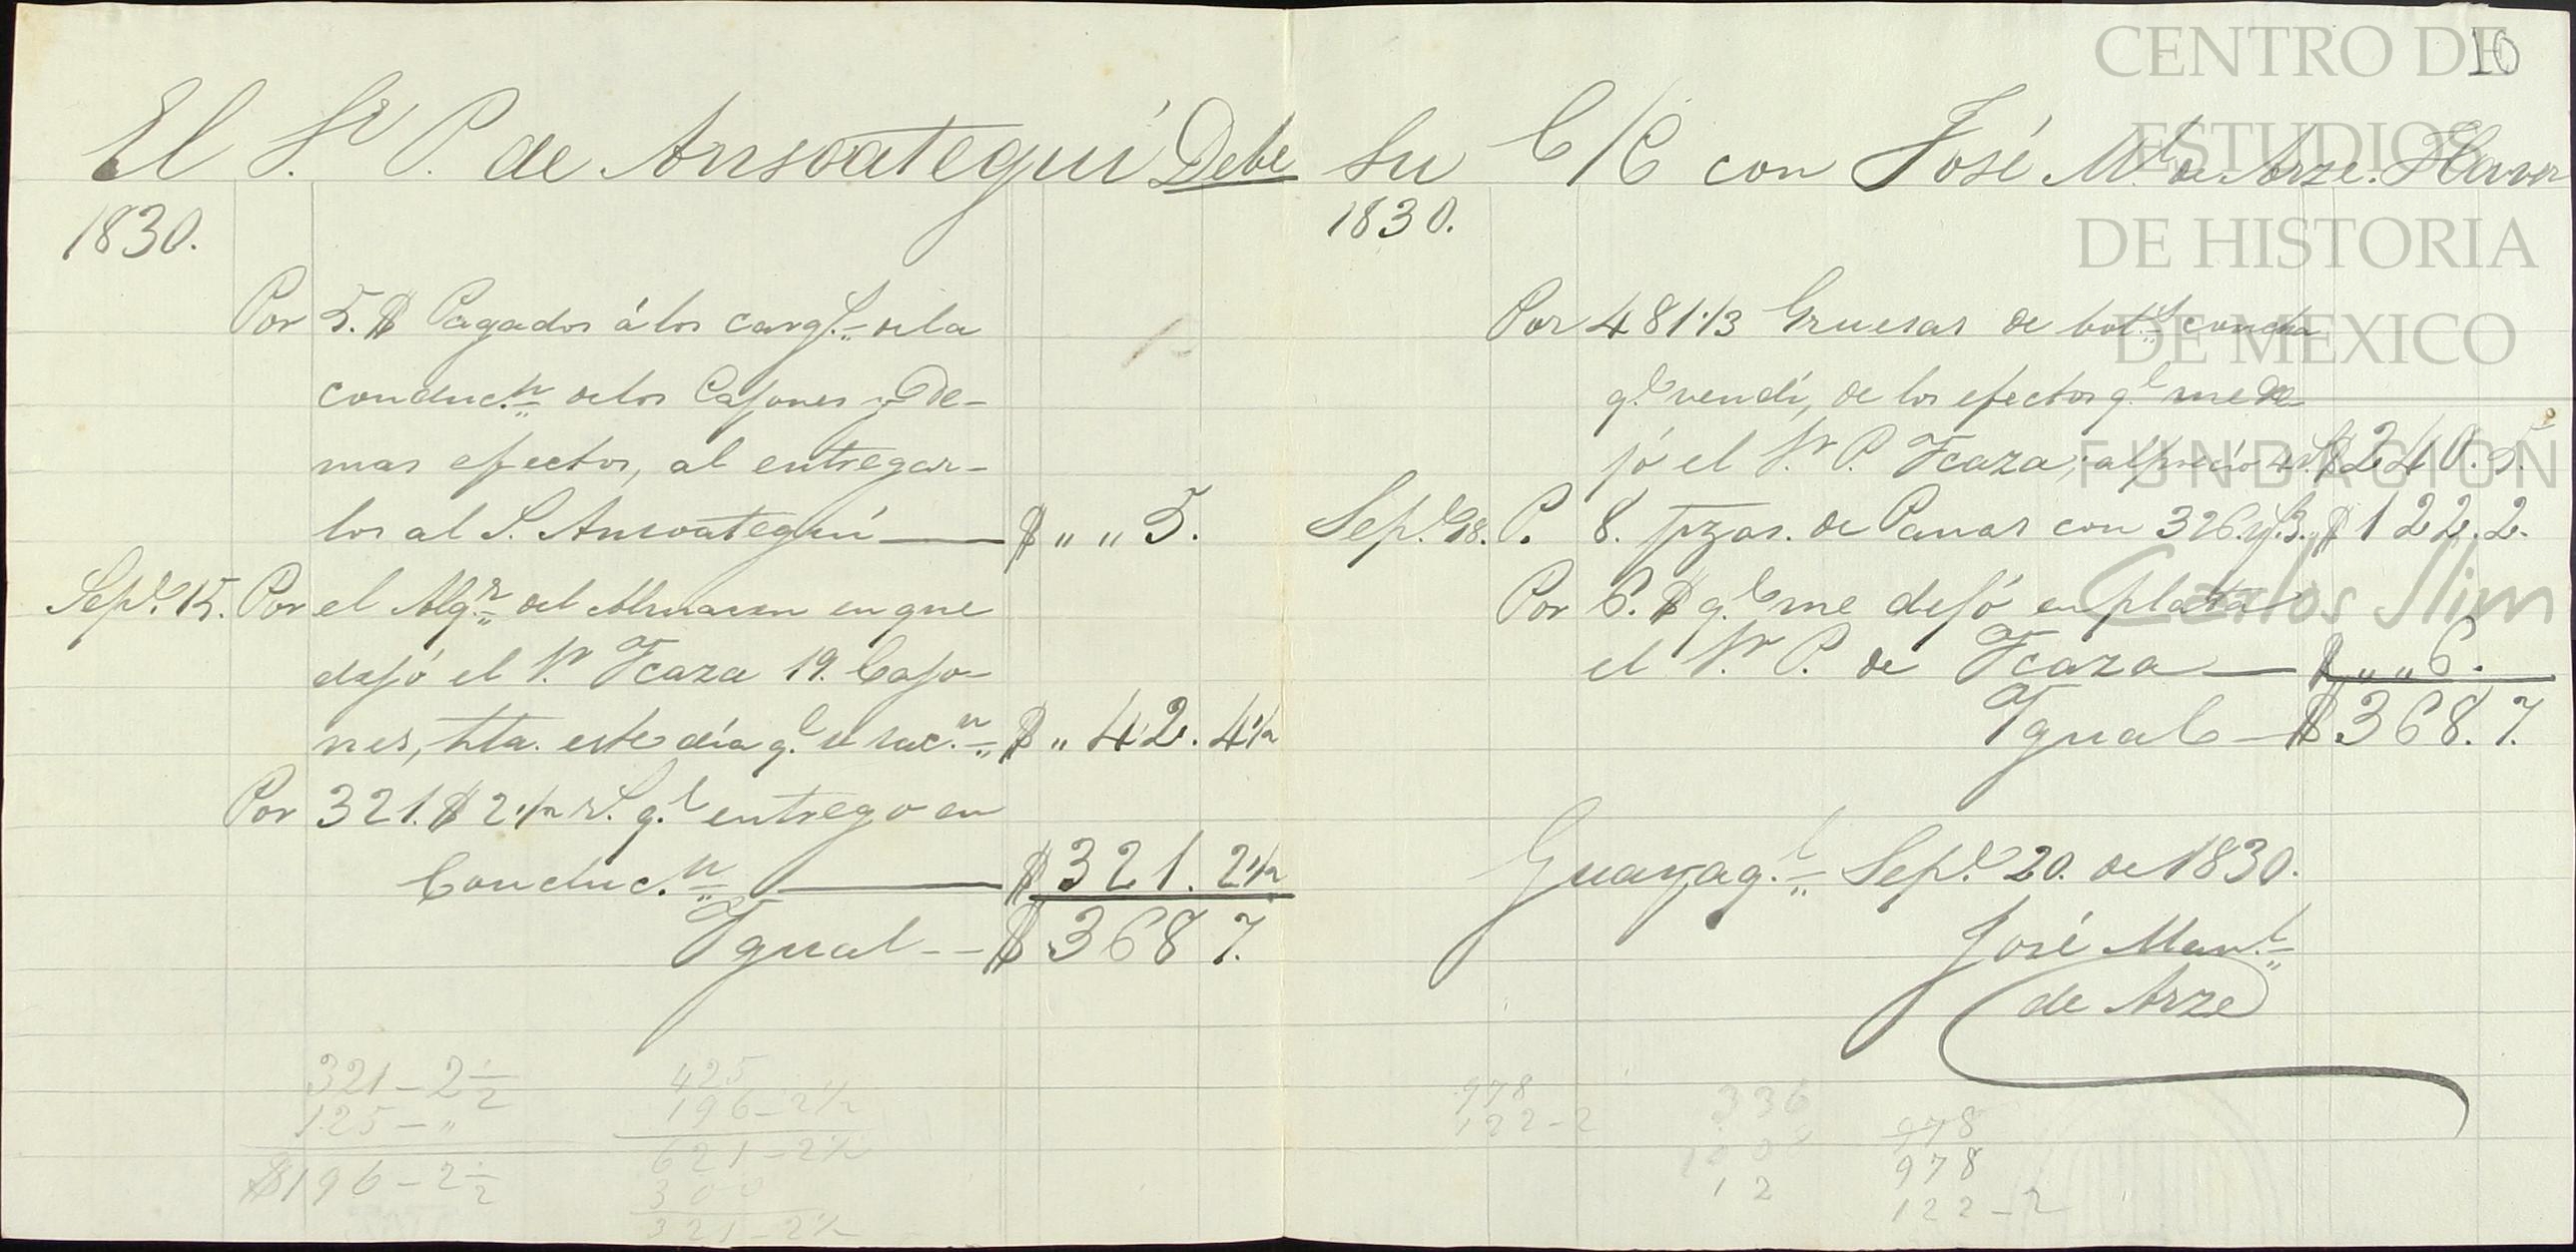 10
El Sr. P. de Ansoategui Debe Su C/C con José Ml. de Arze. Haver
1830.
Por 5.$ Pagados á los cargs. de la
conducn. de los Cajones y De-
mas efectos, al entregar-
los al S. Ansoategui — $ „ „ 5.
Sepe. 15. Por el Alqr. del Almacen en que
dejó el Sr. Ycaza 19. Cajo-
nes, hta. este dia qe. se sacn. $ „ 42. 4½
Por 321.$ 2½ rs. qe. entrego en
Conducn. — $ 321. 2½
Ygual - - $ 368 7.
321 – 2½
125 – „
$196 – 2½
425
196 – 2½
621 – 2½
300
321 – 2½
1830.
Por 481⅓ Gruesas de bots. concha
qe. vendí, de los efectos qe. me de
jó el Sr. P. Ycaza, al precio 4 rs. $ 240. 5.
Sepe. 18. P. 8. pzas. de Panas con 326. ys. 3. $ 122. 2.
Por 6.$ qe. me dejó en plata
el Sr. P. de Ycaza — $ „ „ 6.
Ygual — $ 368. 7.
Guayaql. Sepe. 20. de 1830.
José Manl.
de Arze
978
122 – 2
336
12
978
978
122 – 2
CENTRO DE
ESTUDIOS
DE HISTORIA
DE MEXICO
FUNDACION
Carlos Slim